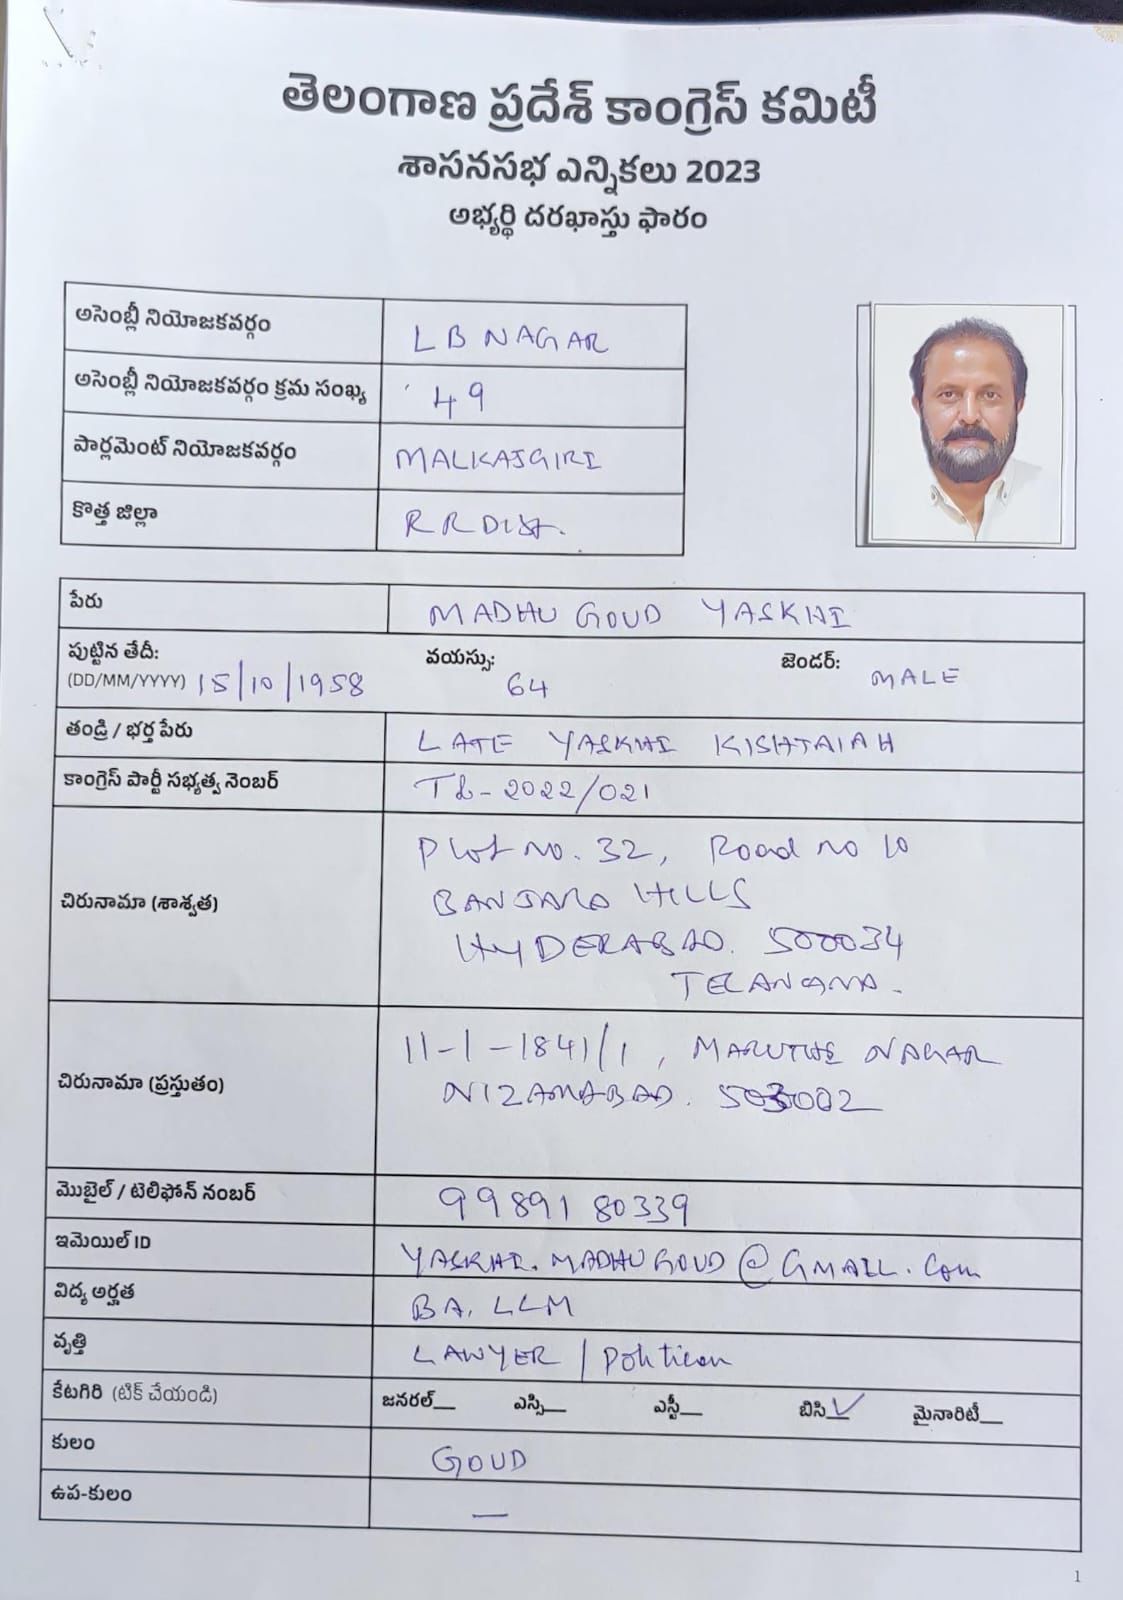 తెలంగాణ ప్రదేశ్ కాంగ్రెస్ కమిటీ
శాసనసభ ఎన్నికలు 2023
అభ్యర్థి దరఖాస్తు ఫారం
అసెంబ్లీ నియోజకవర్గం LB NAGAR
అసెంబ్లీ నియోజకవర్గం క్రమ సంఖ్య 49
పార్లమెంట్ నియోజకవర్గం MALKAJGIRI
కొత్త జిల్లా RR Dist.
పేరు MADHU GOUD YASKHI
పుట్టిన తేదీ: వయస్సు: జెండర్:
(DD/MM/YYYY) 15/10/1958 64 MALE
తండ్రి / భర్త పేరు LATE YASKHI KISHTAIAH
కాంగ్రెస్ పార్టీ సభ్యత్వ నెంబర్ TS-2022/021
చిరునామా (శాశ్వత) Plot no. 32, Road no 10
BANJARA HILLS
HYDERABAD. 500034
TELANGANA.
చిరునామా (ప్రస్తుతం) 11-1-1841/1, MARUTHI NAGAR
NIZAMABAD. 503002
మొబైల్ / టెలిఫోన్ నంబర్ 99891 80339
ఇమెయిల్ ID YASKHI.MADHUGOUD@GMAIL.Com
విద్య అర్హత BA, LLM
వృత్తి LAWYER / Politician
కేటగిరి (టిక్ చేయండి) జనరల్__ ఎస్సి__ ఎస్టీ__ బిసి__✓ మైనారిటీ__
కులం GOUD
ఉప-కులం —
1